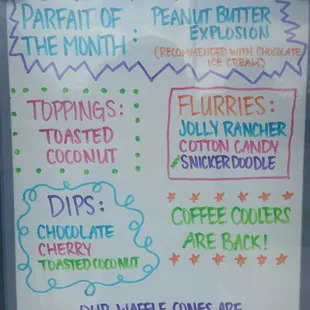 PARFAIT OF
THE MONTH :
PEANUT BUTTER
EXPLOSION
(RECOMMENDED WITH CHOCOLATE
ICE CREAM)
TOPPINGS:
TOASTED
COCONUT
FLURRIES:
JOLLY RANCHER
COTTON CANDY
SNICKERDOODLE
DIPS:
CHOCOLATE
CHERRY
TOASTED COCONUT
COFFEE COOLERS
ARE BACK!
OUR WAFFLE CONES ARE